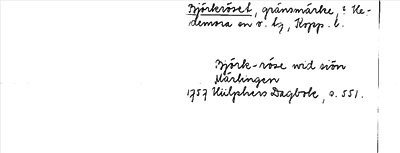 Björkröset, gränsmärke, i He-
demora en o. tg, Kopp. l.
Björk-röse wid siön
Märlingen
1757 Hülphers Dagbok, s. 551.